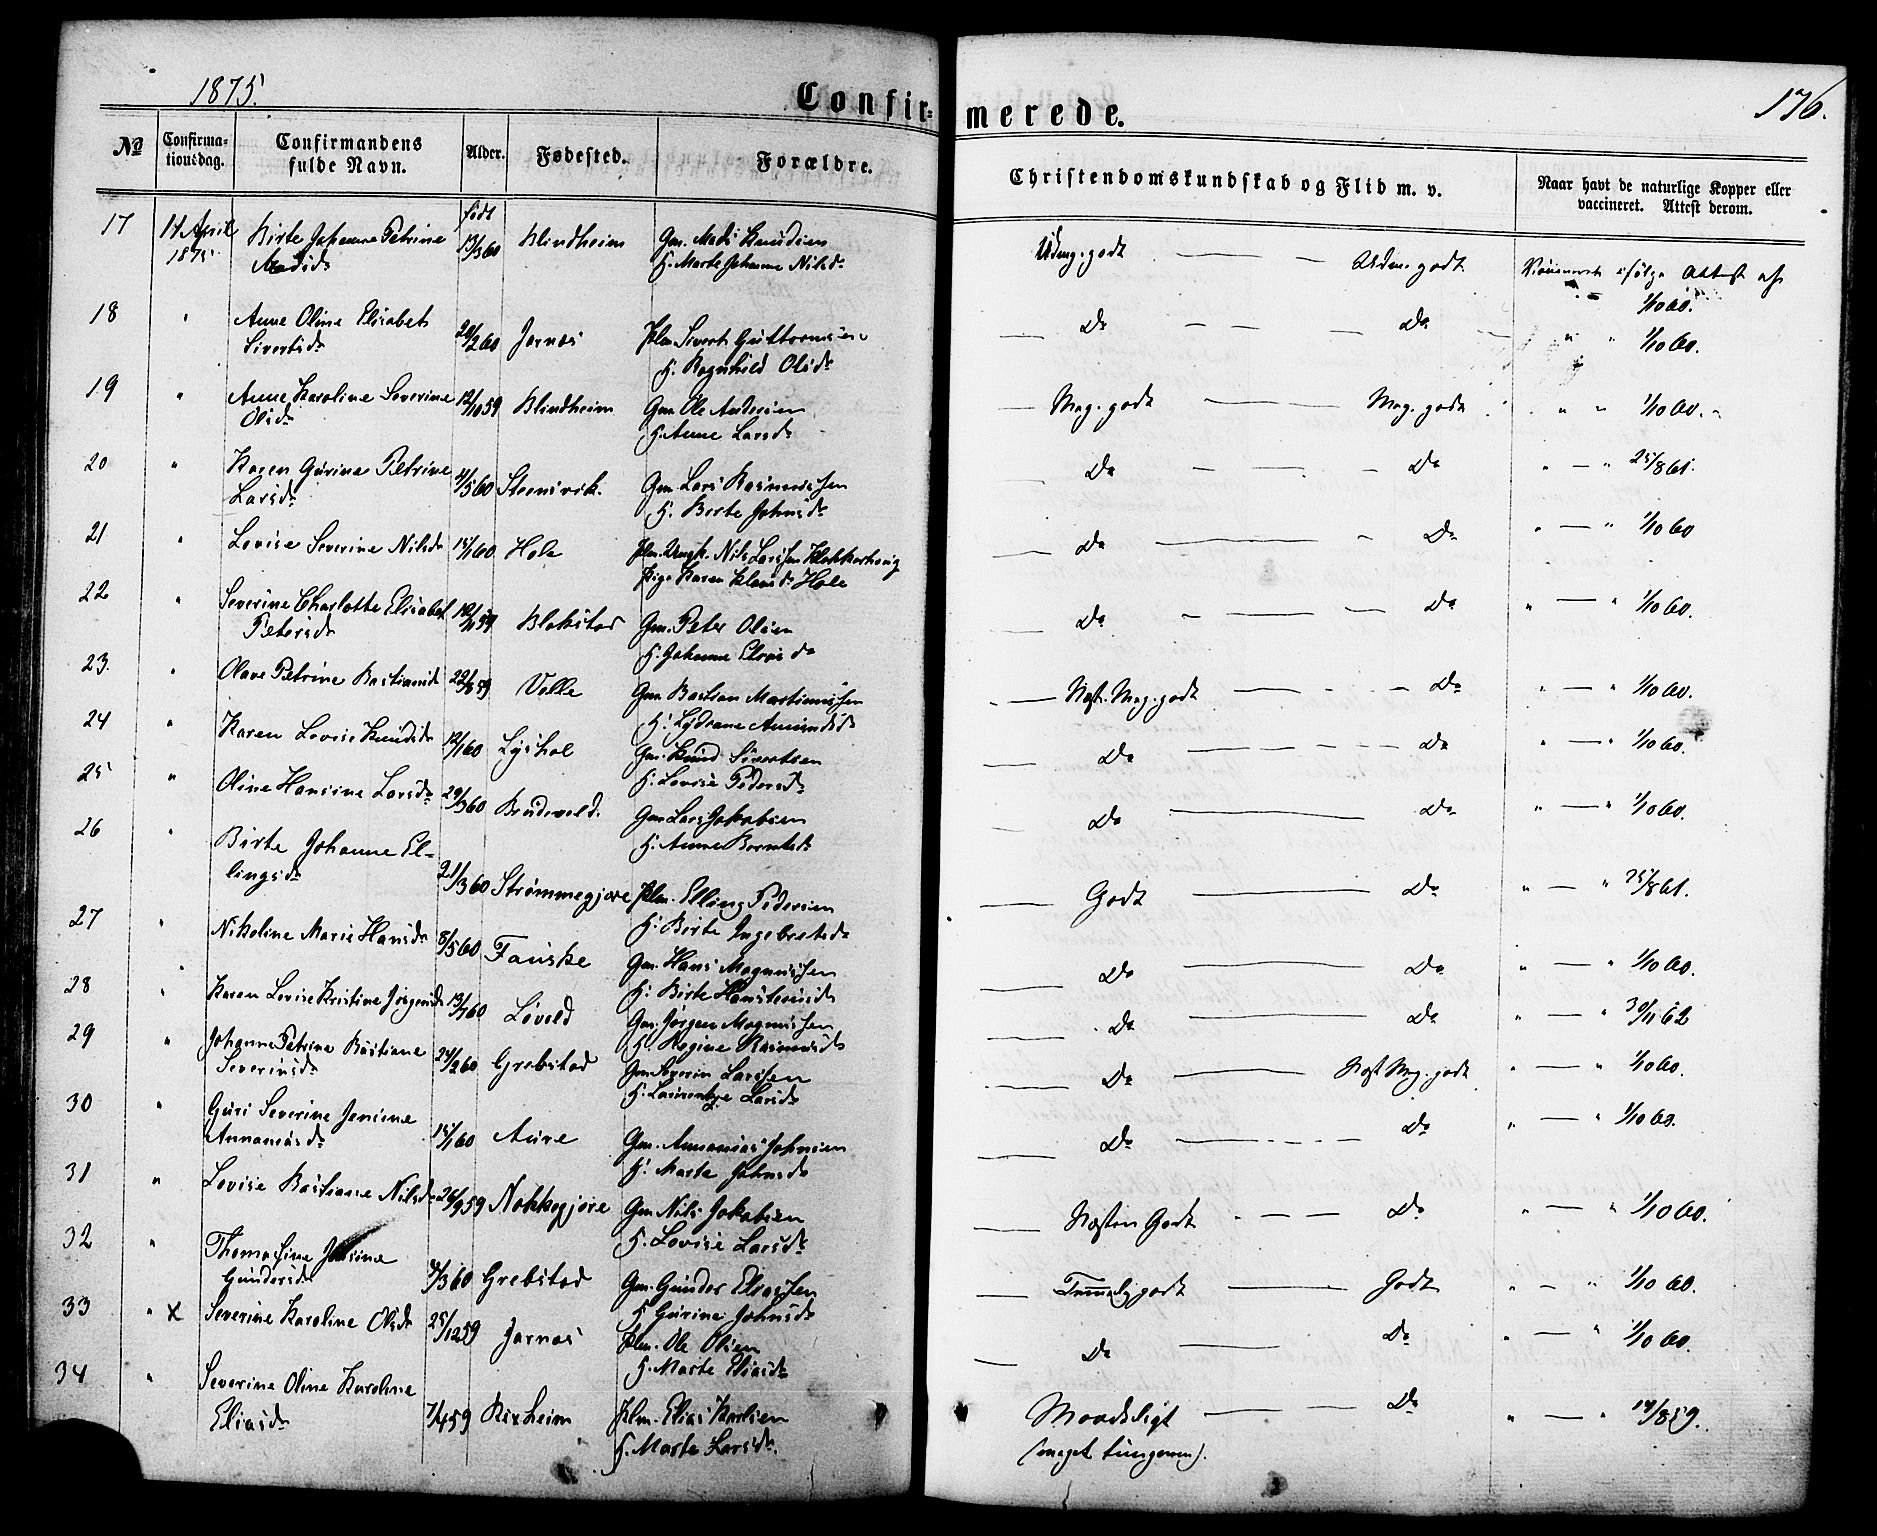 1875.
Confir=
merede.
176.
No
Confirma-
tionsdag.
Confirmandens
fulde Navn.
Alder.
Fødested.
Forældre.
Christendomskundskab og Flid m. v.
Naar havt de naturlige Kopper eller
vaccineret. Attest derom.
17 født Blindheim Gm. Mads Knudsen Udm. godt — — Udm. godt
1875 Birte Johanne Petrine 13/3 60 H. Marte Johanne Nilsd.
Madsd. 1/10 60.
18 " Anne Oline Elisabet 20/2 60 Jarnes Plm. Sivert Guttormsen — Do — — — Do — " " 1/10 60.
Sivertsd. H. Ragnhild Olsd.
19 " Anne Karoline Severine 12/10 59 Blindheim Gm. Ole Andersen — Mag. godt — — Mag. godt " " 1/10 60.
Olsd. H. Anne Larsd.
20 " Karen Gurine Petrine /5 60 Steensvik. Gm. Lars Rasmussen Do — — — Do " — " 25/8 61.
Larsd. H. Berte Johnsd.
21 " Lovise Severine Nilsd. 15/1 60 Hole Nils Larssen — Do — — Do " — " 1/10 60
Pige Karen Hole
22 " Severine Charlotte Elisabet Blakstad Gm. Peter Olsen — Do — — — Do " — " 1/10 60.
Petersd. H. Johanne Elias d.
23. " Olave Petrine Bastiansd. 22/8 59 Valle Gm. Bastian Martinussen — Næst. Mag. godt — — — Do " — " 1/10 60.
H. Lydiane Amundsd.
24 " Karen Lovise Knudsd. 12/1 60 Lyshol Gm. Knud Sivertsen — Do — — — Do " — " 1/10 60.
H. Lovise Pedersd.
25 " Oline Hansine Larsd. 29/3 60 Brudevold. Gm. Lars Jakobsen — Do — Do " — " 1/10 60.
H. Anne Berntsd.
26 " Birte Johanne El-
lingsd. 21/3 60 Strømmegjære Plm. Elling Pedersen — Godt — Do " — " 25/8 61.
H. Berte Ingebretsd.
27 " Nikoline Marie Hansd. 8/5 60 Fauske Gm. Hans Magnussen — Do — Do " — " 1/10 60.
H. Birte
28 " Karen Lovise Kristine Jørgensd. 13/1 60 Løvold Gm. Jørgen Magnussen — Do — Do " — " 30/11 62
H. Regine Rasmusd.
29 " Johanne Petrine Bastiane 24/2 60 Grebstad Gm. Severin Larssen — Do — Næst Mg. godt " — " 1/10 60.
Severinsd. H. Larsd.
30 " Guri Severine Jensine 15/1 60 Aure Gm. Annanias Johnsen — Do — — — Do " — " 1/10 60.
Annaniasd. H. Marte Johnsd.
31 " Lovise Bastiane Nilsd. 26/9 59 Nakkegjære Gm. Nils Jakobsen — Næsten Godt — — — Do " — " 1/10 60.
H. Lovise Larsd.
32 " Thomasine 3/3 60 Grebstad Gm. Gunder Eliassen — Temmelig godt — Godt " — " 1/10 60.
Gundersd. H. Gurine Johnsd.
33 " x Severine Karoline Olsd. 25/12 59 Jarnes Plm. Ole Olsen — Do — Do " — " 1/10 60.
H. Marte Eliasd.
34 " Severine Oline Karoline 7/4 59 Rixheim Plm. Elias Karlsen Maadeligt — — Do " — " 14/8 59.
Eliasd. H. Marte Larsd. (meget tungnem).